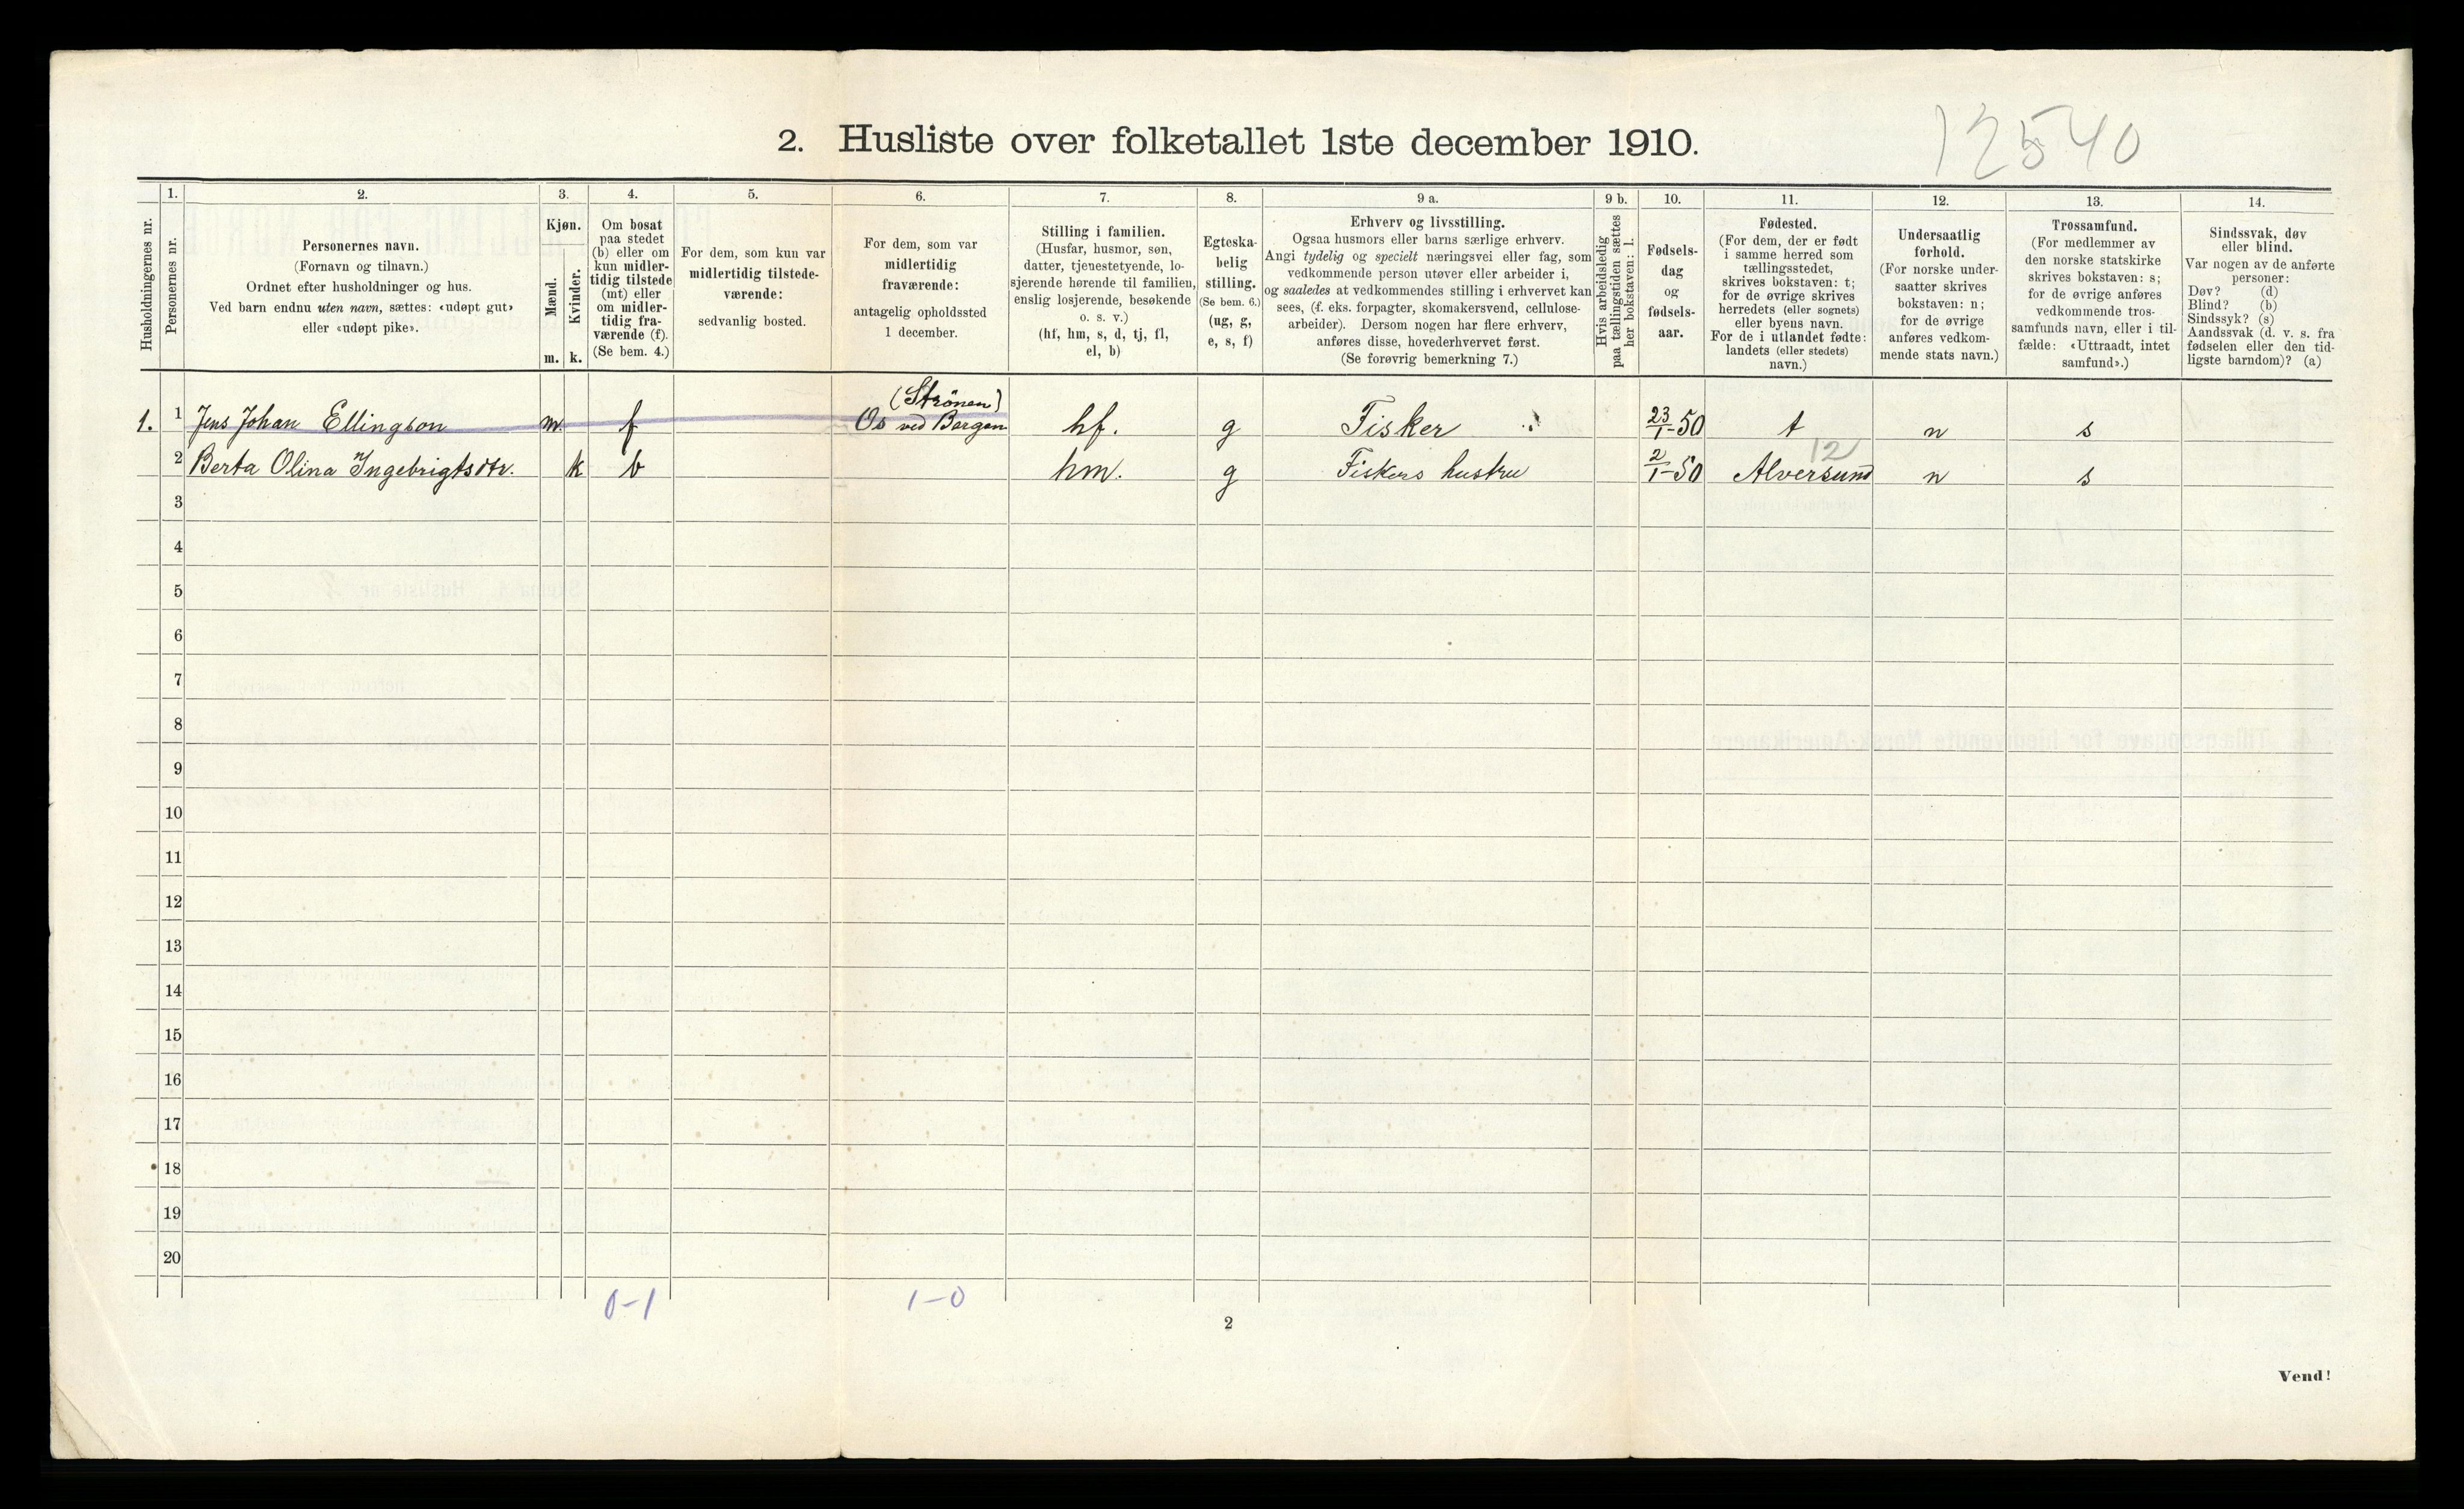 12540
2. Husliste over folketallet 1ste december 1910.
Husholdningernes nr.
1.
Personernes nr.
2.
Personernes navn.
(Fornavn og tilnavn.)
Ordnet efter husholdninger og hus.
Ved barn endnu uten navn, sættes: «udøpt gut»
eller «udøpt pike».
3.
Kjøn.
Mænd.
m.
Kvinder.
k.
4.
Om bosat
paa stedet
(b) eller om
kun midler-
tidig tilstede
(mt) eller
om midler-
tidig fra-
værende (f).
(Se bem. 4.)
5.
For dem, som kun var
midlertidig tilstede-
værende:
sedvanlig bosted.
6.
For dem, som var
midlertidig
fraværende:
antagelig opholdssted
1 december.
7.
Stilling i familien.
(Husfar, husmor, søn,
datter, tjenestetyende, lo-
sjerende hørende til familien,
enslig losjerende, besøkende
o. s. v.)
(hf, hm, s, d, tj, fl,
el, b)
8.
Egteska-
belig
stilling.
(Se bem. 6.)
(ug, g,
e, s, f)
9 a.
Erhverv og livsstilling.
Ogsaa husmors eller barns særlige erhverv.
Angi tydelig og specielt næringsvei eller fag, som
vedkommende person utøver eller arbeider i,
og saaledes at vedkommendes stilling i erhvervet kan
sees, (f. eks. forpagter, skomakersvend, cellulose-
arbeider). Dersom nogen har flere erhverv,
anføres disse, hovederhvervet først.
(Se forøvrig bemerkning 7.)
9 b.
Hvis arbeidsledig
paa tællingstiden sættes
her bokstaven: l.
10.
Fødsels-
dag
og
fødsels-
aar.
11.
Fødested.
(For dem, der er født
i samme herred som
tællingsstedet,
skrives bokstaven: t;
for de øvrige skrives
herredets (eller sognets)
eller byens navn.
For de i utlandet fødte:
landets (eller stedets)
navn.)
12.
Undersaatlig
forhold.
(For norske under-
saatter skrives
bokstaven: n;
for de øvrige
anføres vedkom-
mende stats navn.)
13.
Trossamfund.
(For medlemmer av
den norske statskirke
skrives bokstaven: s;
for de øvrige anføres
vedkommende tros-
samfunds navn, eller i til-
fælde: «Uttraadt, intet
samfund».)
14.
Sindssvak, døv
eller blind.
Var nogen av de anførte
personer:
Døv? (d)
Blind? (b)
Sindssyk? (s)
Aandssvak (d. v. s. fra
fødselen eller den tid-
ligste barndom)? (a)
(Strönen)
1. 1 Jens Johan Ellingson m. f Os ved Bergen hf. g Fisker 23/1-50 t n s
12
2 Berta Olina Ingebrigtsdtr. k b hm. g Fiskers hustru 2/1-50 Alversund n s
3
4
5
6
7
8
9
10
11
12
13
14
15
16
17
18
19
20
0-1 1-0
2
Vend!